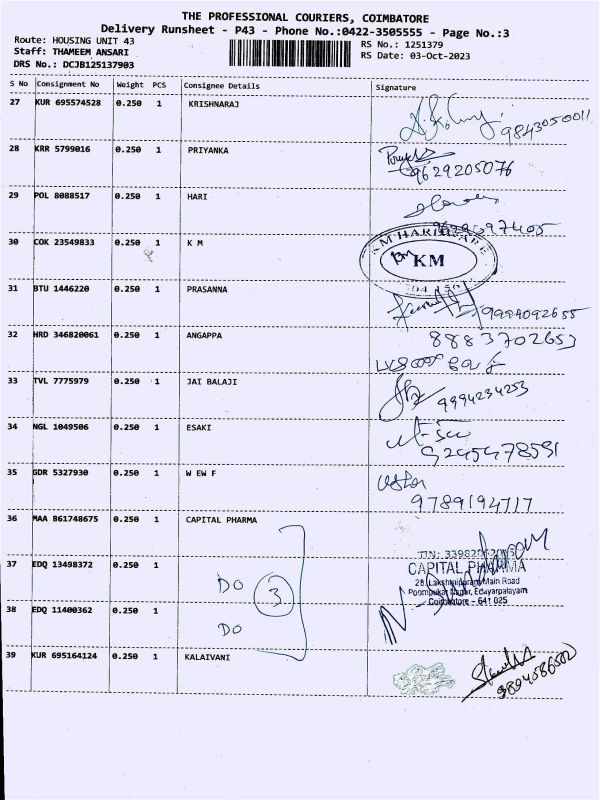 THE PROFESSIONAL COURIERS, COIMBATORE
Delivery Runsheet - P43 - Phone No.:0422-3505555 - Page No.:3
Route: HOUSING UNIT 43
RS No.: 1251379
Staff: THAMEEM ANSARI
RS Date: 03-Oct-2023
DRS No.: DCJB125137903
S No Consignment No Weight PCS Consignee Details Signature
27 KUR 695574528 0.250 1 KRISHNARAJ
9843050011
28 KRR 5799016 0.250 1 PRIYANKA
9629205076
29 POL 8088517 0.250 1 HARI
30 COK 23549833 0.250 1 K M
KM HARDWARE
KM
31 BTU 1446220 0.250 1 PRASANNA
9994092655
32 HRD 346820061 0.250 1 ANGAPPA
8883702653
33 TVL 7775979 0.250 1 JAI BALAJI
9994234253
34 NGL 1049506 0.250 1 ESAKI
9245478591
35 GDR 5327930 0.250 1 W EW F
9789194717
36 MAA 861748675 0.250 1 CAPITAL PHARMA
37 EDQ 13498372 0.250 1
DO
3
CAPITAL PHARMA
28, Lakshmipuram Main Road
Poompukar Nagar, Edayarpalayam
Coimbatore - 641 025
38 EDQ 11400362 0.250 1
DO
39 KUR 695164124 0.250 1 KALAIVANI
9894586502